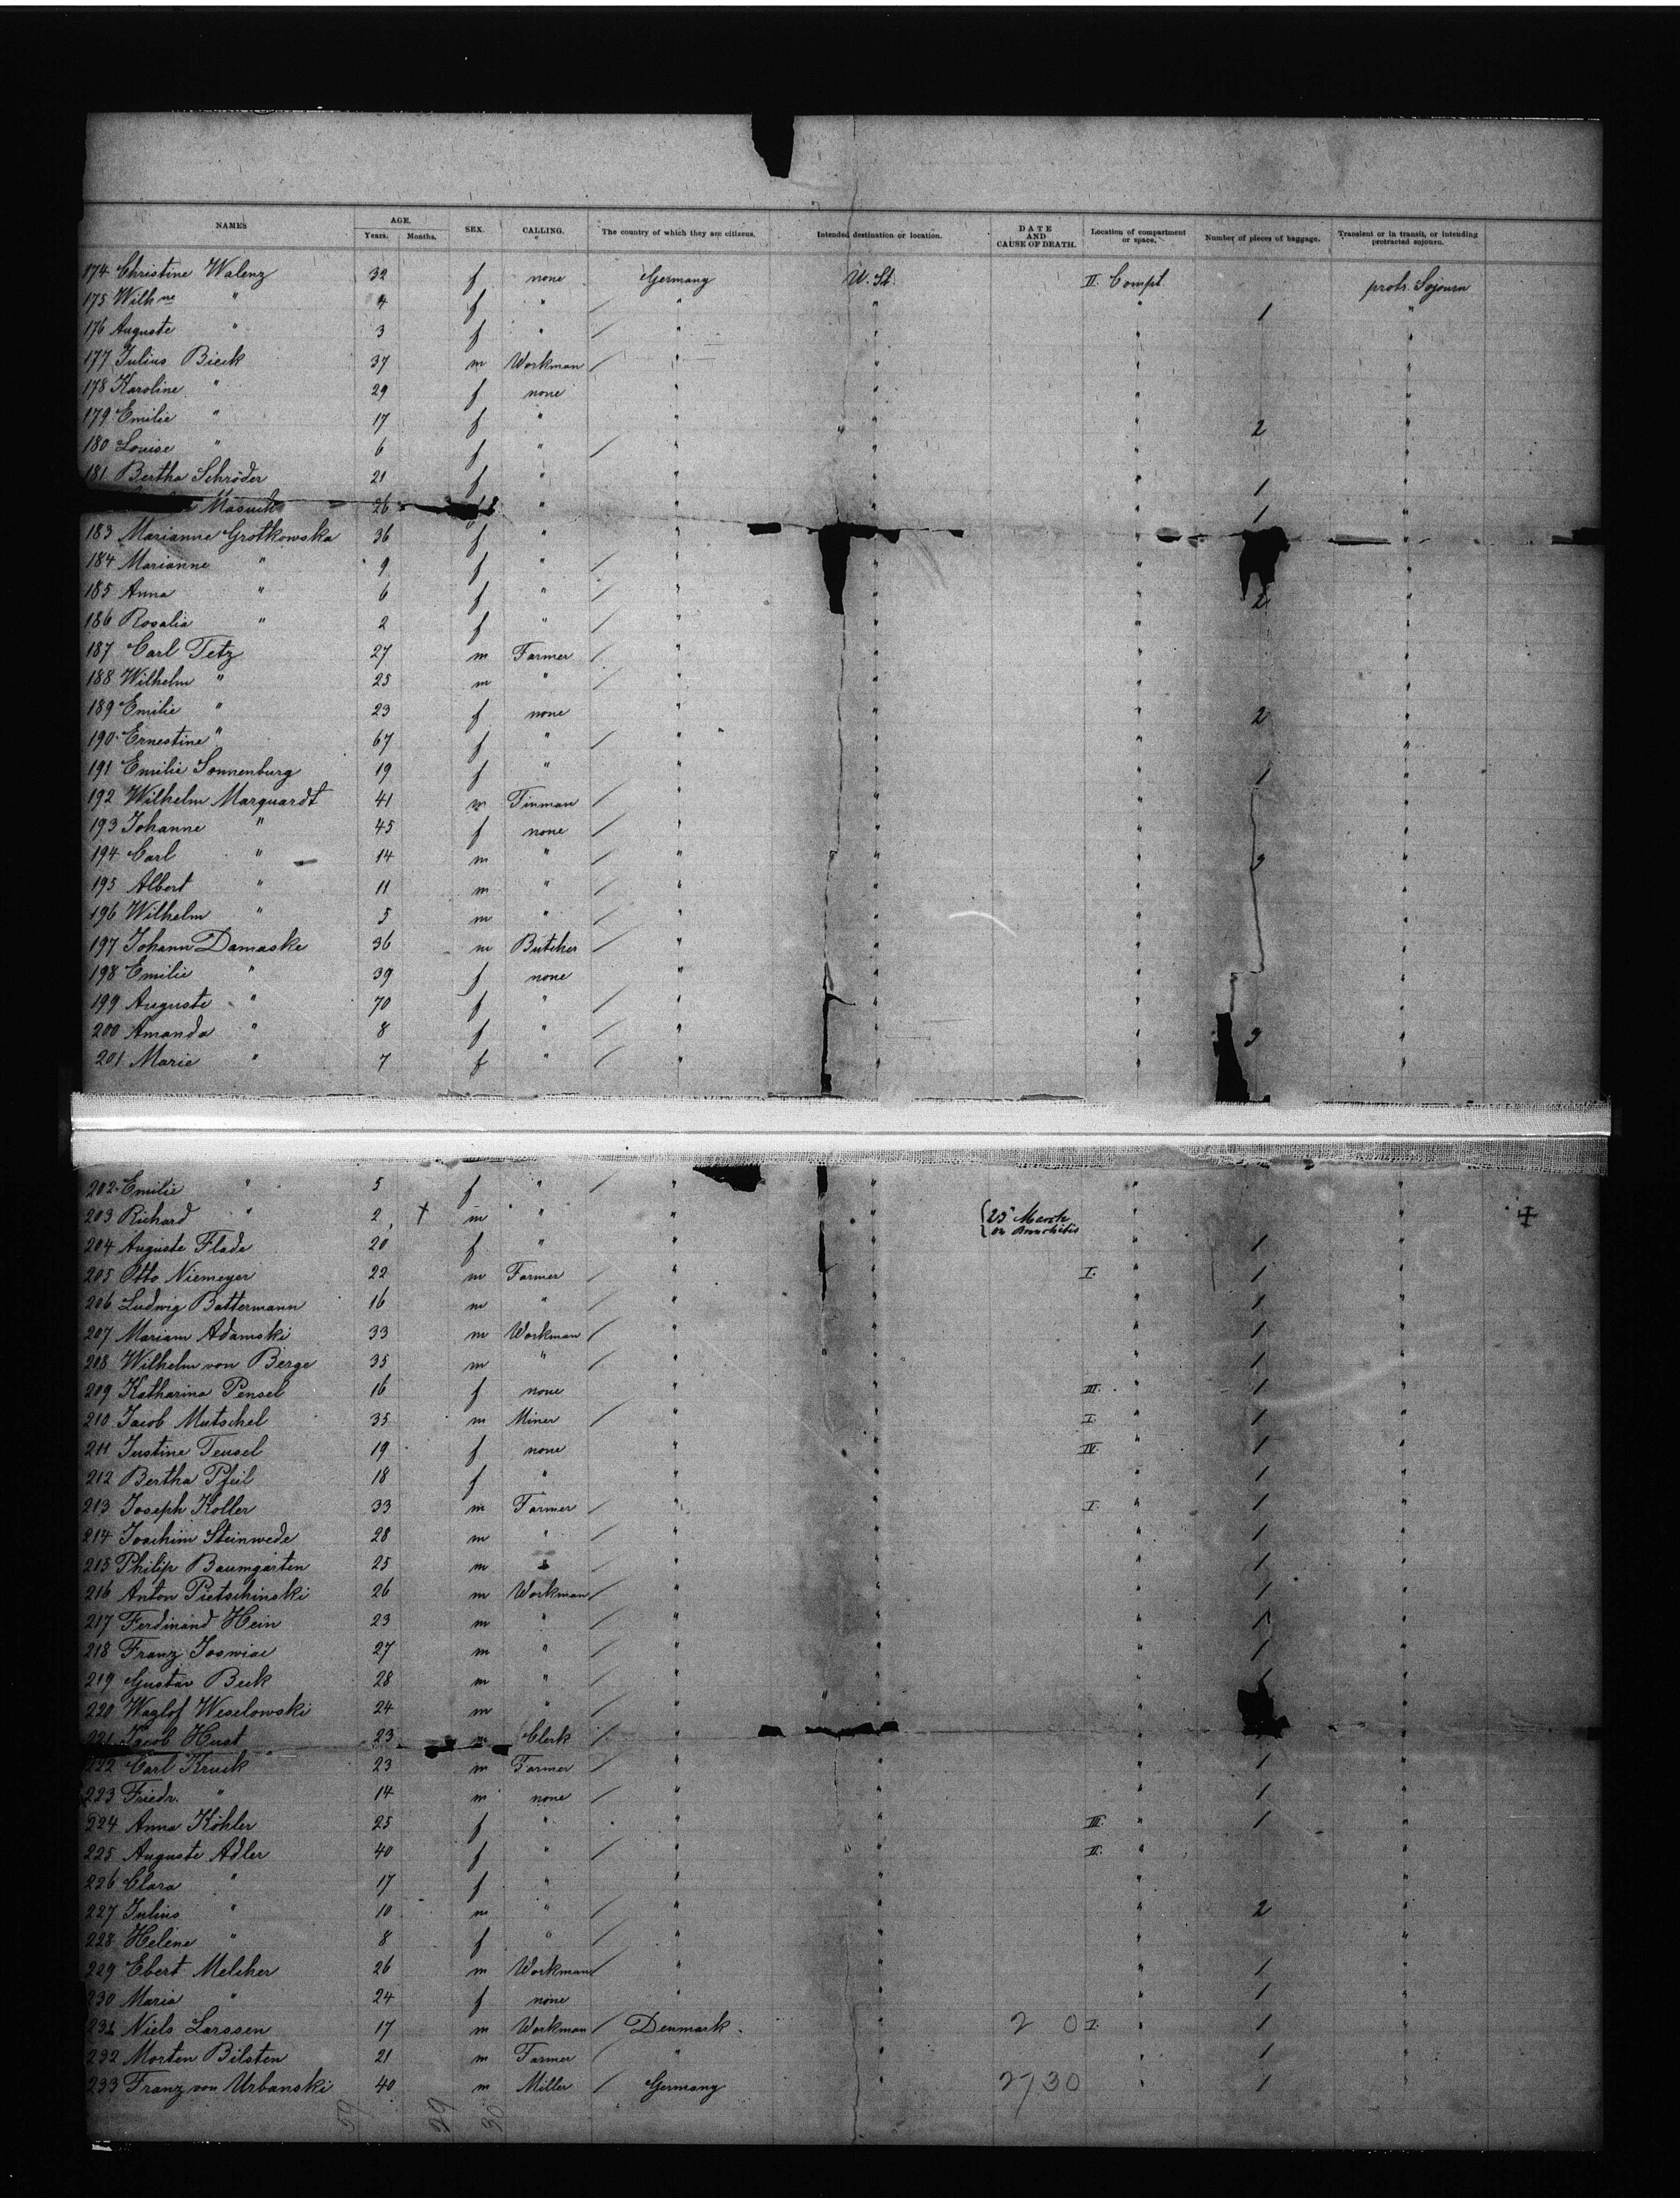 NAMES AGE. Years. Months. SEX. CALLING. The country of which they are citizens. Intended destination or location. DATE AND CAUSE OF DEATH. Location of compartment or space. Number of pieces of baggage. Transient or in transit, or intending protracted sojourn.
174 Christine Walenz 32 f none Germany U. St. II. Compt. protr. Sojourn
175 Wilh ne " 4 f " / " " " 1 "
176 Auguste " 3 f " / " " " "
177 Julius Bieck 37 m Workman / " " " "
178 Karoline " 29 f none " " " "
179 Emilie " 17 f " " " " 2 "
180 Louise " 6 f " / " " " "
181 Bertha Schröder 21 f " " " " 1 "
Masuch 26 " " " " 1 "
183 Marianne Grotkowska 36 f " " " " "
184 Marianne " 9 f " / " " " "
185 Anna " 6 f " / " " " 2 "
186 Rosalie " 2 f " / " " " "
187 Carl Tetz 27 m Farmer / " " " "
188 Wilhelm " 25 m " / " " " "
189 Emilie " 23 f none " " " 2 "
190 Ernestine " 67 f " / " " " "
191 Emilie Sonnenburg 19 f " " " " 1 "
192 Wilhelm Marquardt 41 m Tinman / " " " "
193 Johanne " 45 f none / " " " "
194 Carl " 14 m " / " " " 3 "
195 Albert " 11 m " / " " " "
196 Wilhelm " 5 m " / " " " "
197 Johann Damaske 36 m Butcher / " " " "
198 Emilie " 39 f none " " " "
199 Auguste " 70 f " / " " " "
200 Amanda " 8 f " / " " " 3 "
201 Marie " 7 f " / " " " "
202 Emilie " 5 f " / " " " "
203 Richard " 2 † m " " " { 25 March " "
204 Auguste Flade 20 f " " " " 1 "
205 Otto Niemeyer 22 m Farmer / " " I. " 1 "
206 Ludwig Battermann 16 m " / " " " 1 "
207 Mariam Adamski 33 m Workman / " " " 1 "
208 Wilhelm von Berge 35 m " / " " " 1 "
209 Katharina Pensel 16 f none " " III. " 1 "
210 Jacob Mutschel 35 m Miner / " " I. " 1 "
211 Justine Teusel 19 f none " " IV. " 1 "
212 Bertha Pfeil 18 f " " " " 1 "
213 Joseph Koller 33 m Farmer / " " I. " 1 "
214 Joachim Steinwede 28 m " / " " " 1 "
215 Philip Baumgarten 25 m " / " " " 1 "
216 Anton Pietschinski 26 m Workman / " " " 1 "
217 Ferdinand Hein 23 m " / " " " 1 "
218 Franz Joswiac 27 m " / " " " 1 "
219 Gustav Beck 28 m " / " " " "
220 Wazlof Weselowski 24 m " / " " " "
221 Jacob Hust 23 m Clerk / " " " "
222 Carl Kruck 23 m Farmer / " " " 1 "
223 Friedr. " 14 m none / " " " 1 "
224 Anna Köhler 25 f " " " III. " 1 "
225 Auguste Adler 40 f " / " " II. " "
226 Clara " 17 f " " " " "
227 Julius " 10 m " / " " " 2 "
228 Helene " 8 f " / " " " "
229 Ebert Melcher 26 m Workman / " " " 1 "
230 Maria " 24 f none " " " 1 "
231 Niels Larssen 17 m Workman / Denmark. " 2 0 I. " 1 "
232 Morten Bilsten 21 m Farmer / " " " 1 "
233 Franz von Urbanski 40 m Miller / Germany " 2730 " 1 "
59 29 30